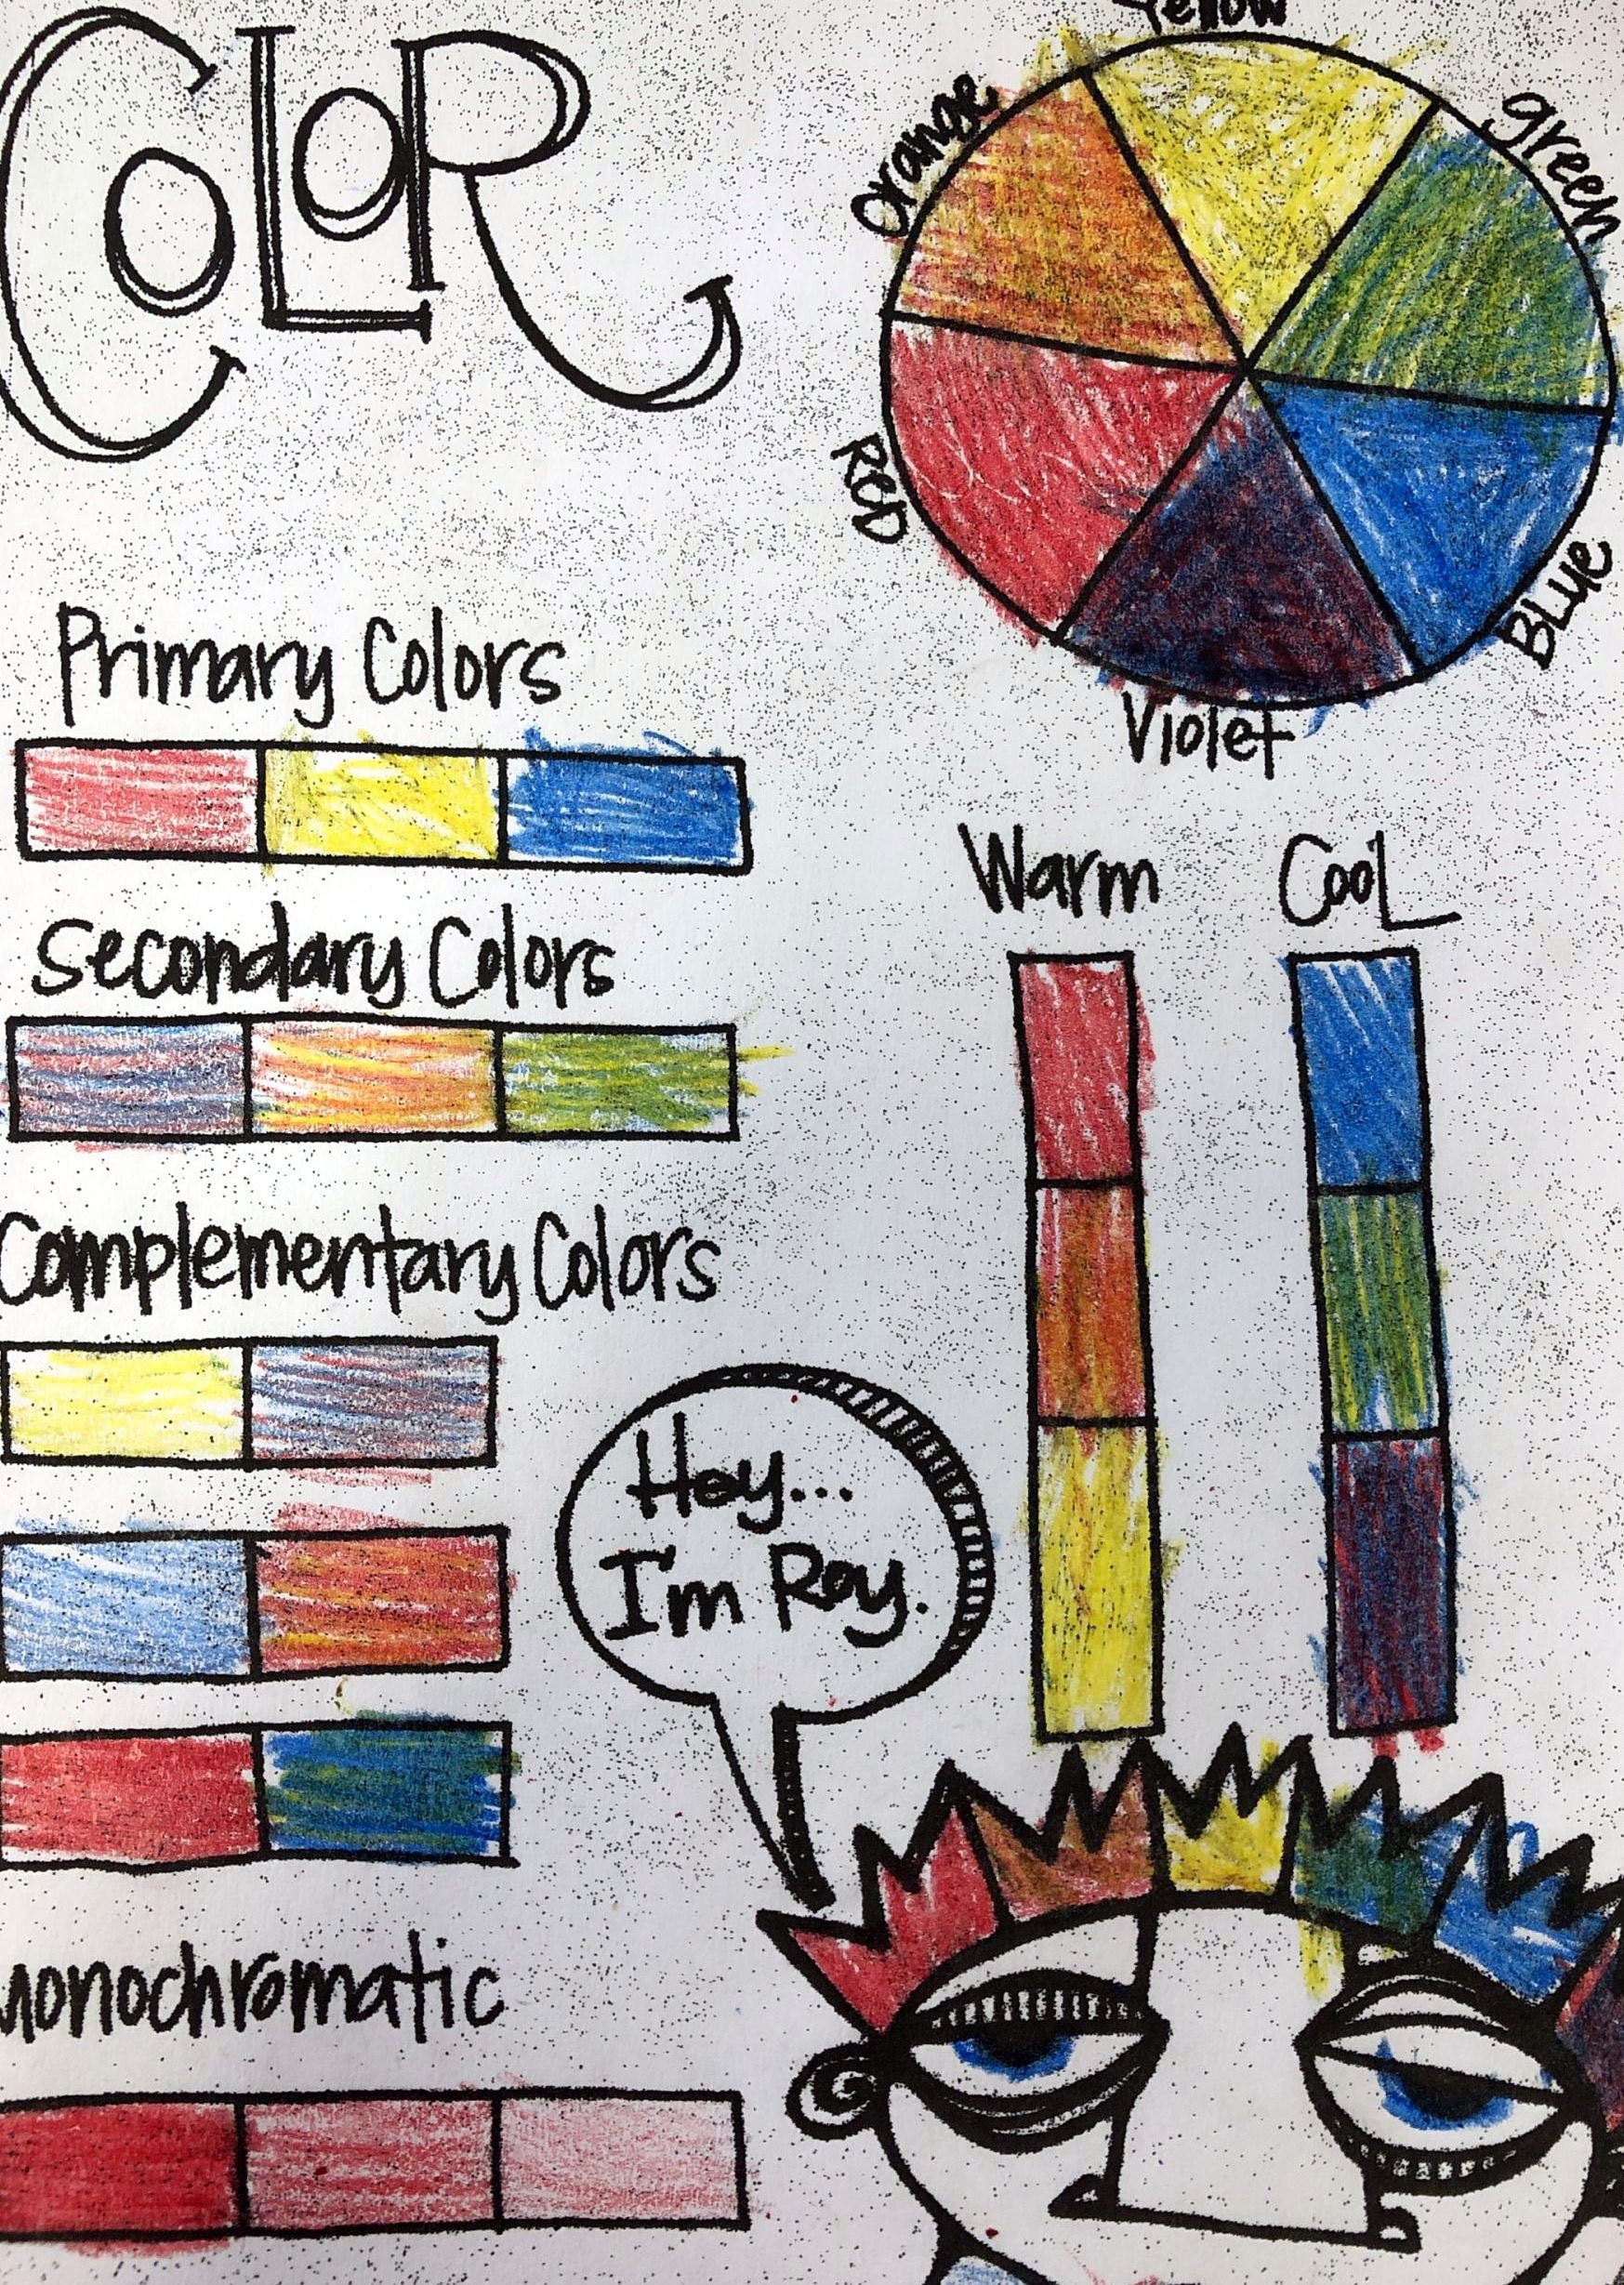 COLOR
Yellow
Orange
green
RED
BLUe
Violet
Primary Colors
Secondary Colors
Warm
CooL
Complementary Colors
Hey...
I'm Roy.
monochromatic